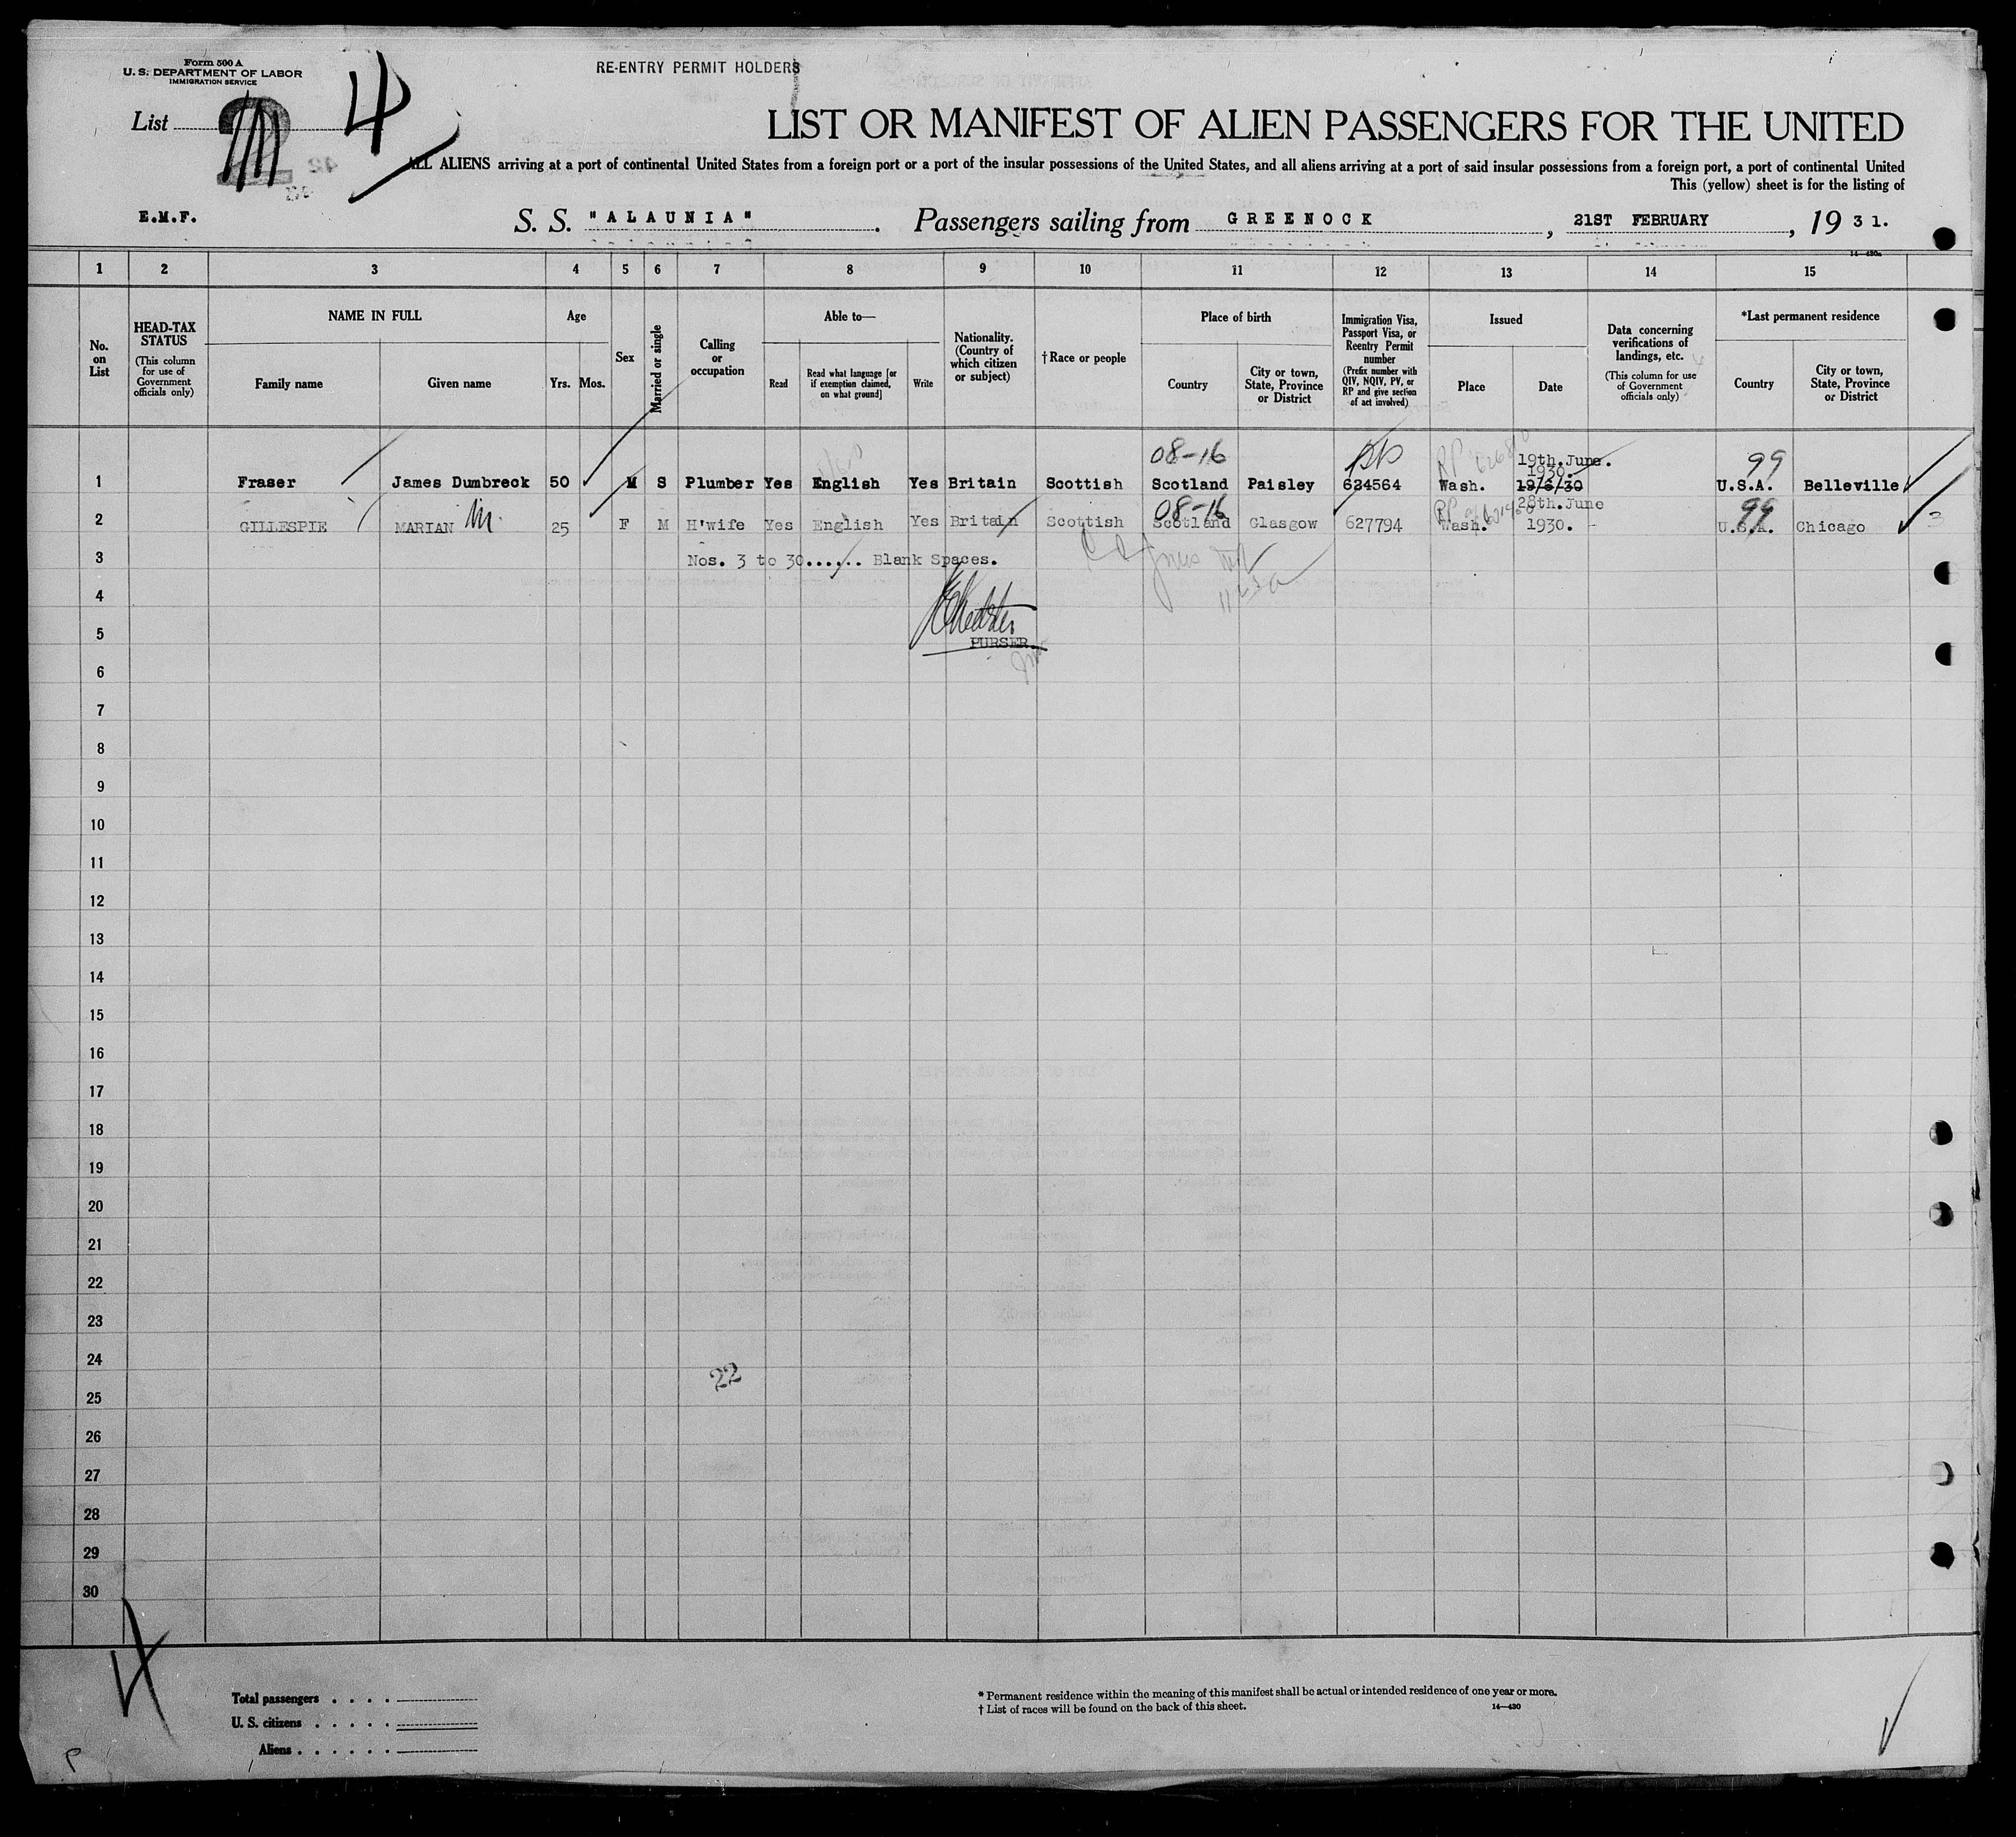 Form 500 A
U. S. DEPARTMENT OF LABOR
IMMIGRATION SERVICE
RE-ENTRY PERMIT HOLDERS
List 4
LIST OR MANIFEST OF ALIEN PASSENGERS FOR THE UNITED
ALL ALIENS arriving at a port of continental United States from a foreign port or a port of the insular possessions of the United States, and all aliens arriving at a port of said insular possessions from a foreign port, a port of continental United
This (yellow) sheet is for the listing of
E.M.F. S. S. "ALAUNIA" . Passengers sailing from GREENOCK , 21ST FEBRUARY , 19 31.
14—430a
1 2 3 4 5 6 7 8 9 10 11 12 13 14 15
No. on List
HEAD-TAX STATUS (This column for use of Government officials only)
NAME IN FULL
Family name Given name
Age
Yrs. Mos.
Sex
Married or single
Calling or occupation
Able to—
Read
Read what language [or if exemption claimed, on what ground]
Write
Nationality. (Country of which citizen or subject)
† Race or people
Place of birth
Country
City or town, State, Province or District
Immigration Visa, Passport Visa, or Reentry Permit number (Prefix number with QIV, NQIV, PV, or RP and give section of act involved)
Issued
Place Date
Data concerning verifications of landings, etc. (This column for use of Government officials only)
*Last permanent residence
Country
City or town, State, Province or District
08-16 99
19th.June.
1930.
1 Fraser James Dumbreck 50 M S Plumber Yes English Yes Britain Scottish Scotland Paisley 624564 Wash. 19/6/30 U.S.A. Belleville
08-16 28th.June 99
2 GILLESPIE MARIAN M. 25 F M H'wife Yes English Yes Britain Scottish Scotland Glasgow 627794 Wash. 1930. - U.S.A. Chicago
3 Nos. 3 to 30...... Blank Spaces.
4
5 PURSER.
6
7
8
9
10
11
12
13
14
15
16
17
18
19
20
21
22
23
24
22
25
26
27
28
29
30
4
Total passengers . . . .
U. S. citizens . . . . .
Aliens . . . . . .
* Permanent residence within the meaning of this manifest shall be actual or intended residence of one year or more.
† List of races will be found on the back of this sheet.
14—430